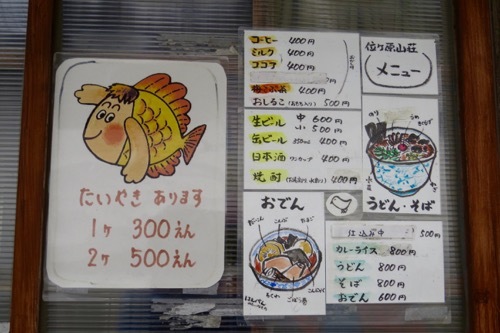 たいやき あります
1ヶ 300えん
2ヶ 500えん
コーヒー 400円
ミルク 400円
ココア 400円
400円
おしるこ 500円
生ビール 中 600円
小 500円
缶ビール 350ml 400円
日本酒 ワンカップ 400円
焼酎 400円
おでん
こんぶ
たまご
ちくわ
はんぺん
位ヶ原山荘
メニュー
のり
うどん・そば
仕込み中 500円
カレーライス 800円
うどん 800円
そば 800円
おでん 600円